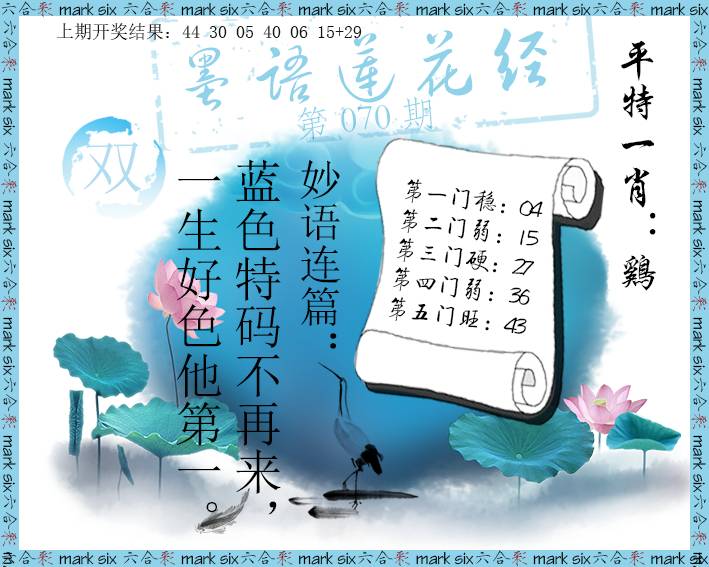 上期开奖结果：44 30 05 40 06 15+29
墨语莲花经
第 070 期
双
平特一肖：鷄
妙语连篇：
蓝色特码不再来，
一生好色他第一。
第一门稳：04
第二门弱：15
第三门硬：27
第四门弱：36
第五门旺：43
六合彩 mark six 六合彩 mark six 六合彩 mark six 六合彩 mark six 六合彩 mark six